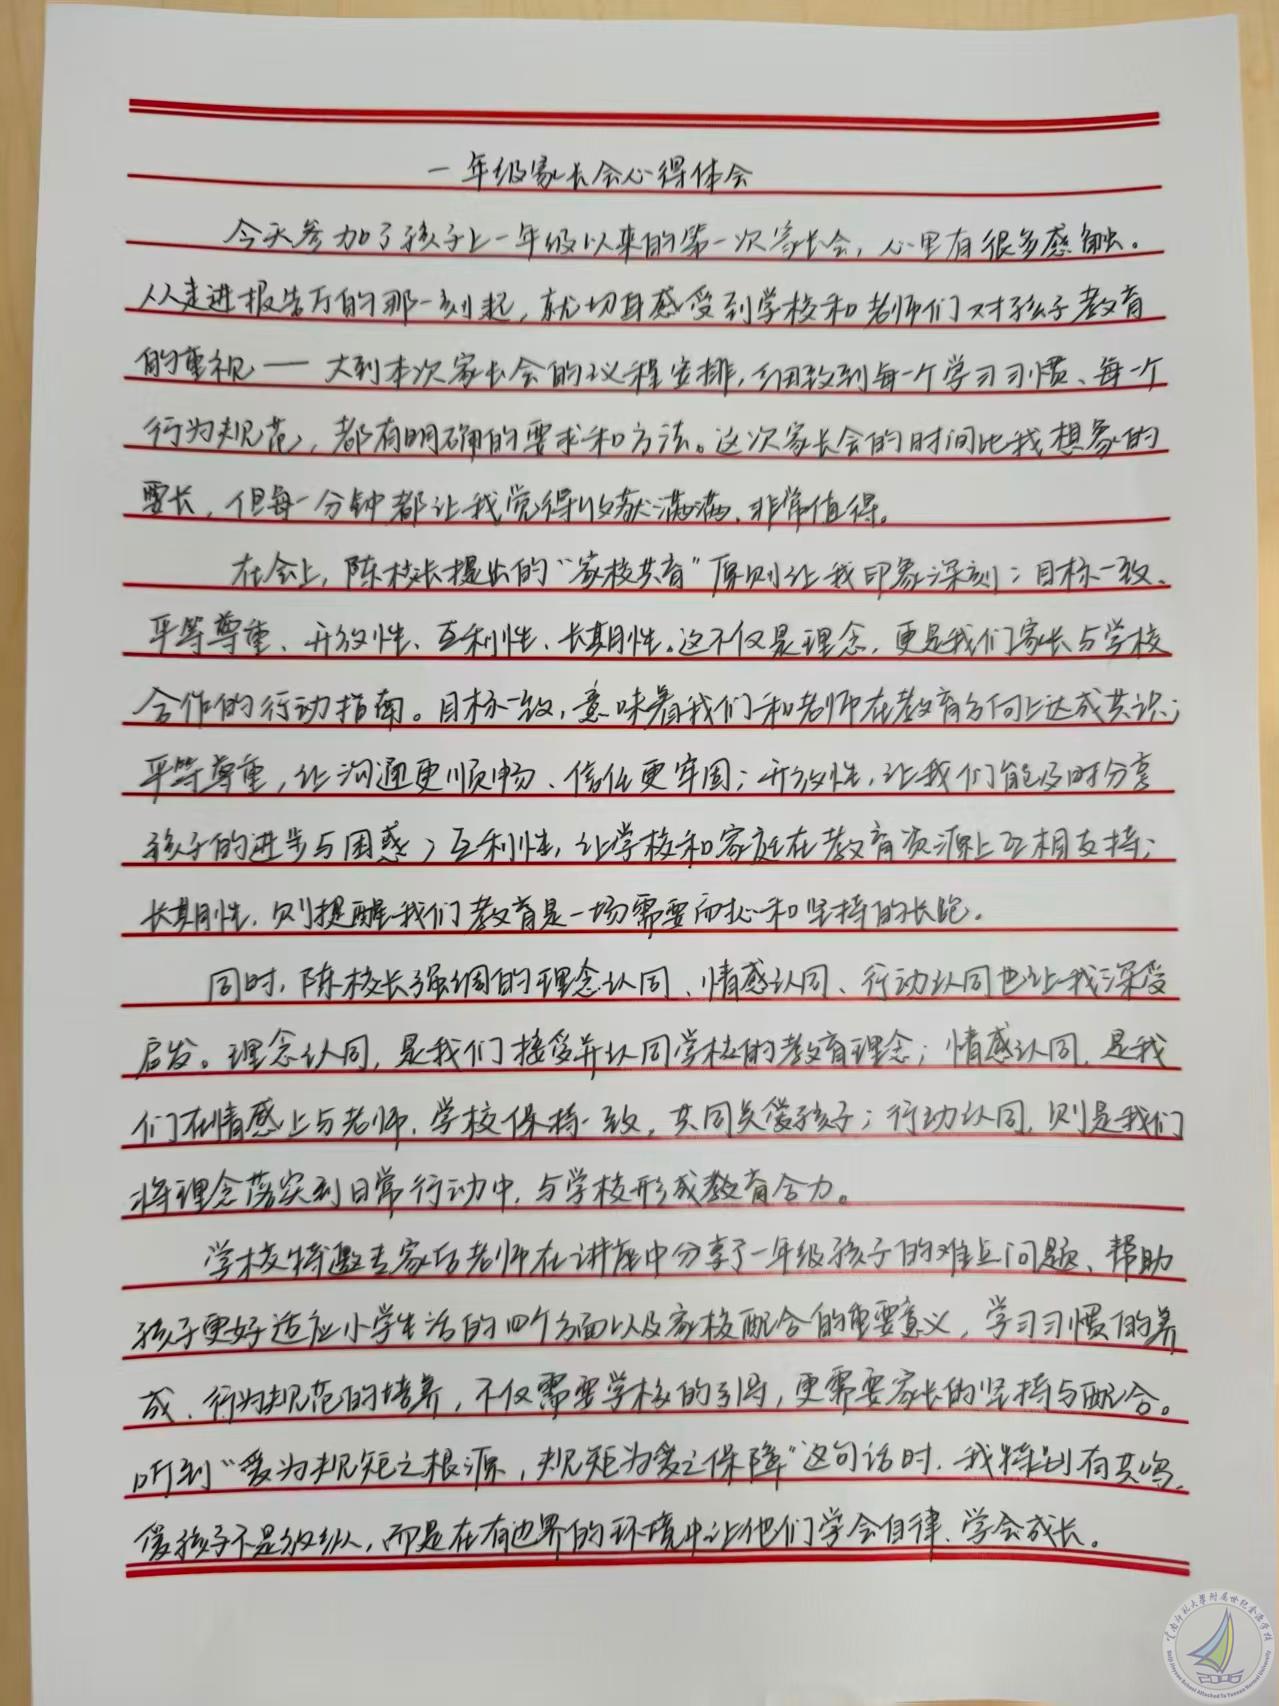 一年级家长会心得体会
今天参加了孩子上一年级以来的第一次家长会，心里有很多感触。
从走进报告厅的那一刻起，就切身感受到学校和老师们对孩子教育
的重视——大到本次家长会的议程安排，细致到每一个学习习惯、每一个
行为规范，都有明确的要求和方法。这次家长会的时间比我想象的
要长，但每一分钟都让我觉得收获满满、非常值得。
在会上，陈校长提出的“家校共育”原则让我印象深刻：目标一致、
平等尊重、开放性、互利性、长期性。这不仅是理念，更是我们家长与学校
合作的行动指南。目标一致，意味着我们和老师在教育方向上达成共识；
平等尊重，让沟通更顺畅、信任更牢固；开放性，让我们能及时分享
孩子的进步与困惑；互利性，让学校和家庭在教育资源上互相支持；
长期性，则提醒我们教育是一场需要耐心和坚持的长跑。
同时，陈校长强调的理念认同、情感认同、行动认同也让我深受
启发。理念认同，是我们接受并认同学校的教育理念；情感认同，是我
们在情感上与老师、学校保持一致，共同关爱孩子；行动认同，则是我们
将理念落实到日常行动中，与学校形成教育合力。
学校特邀专家后老师在讲座中分享了一年级孩子的难点问题、帮助
孩子更好适应小学生活的四个方面以及家校配合的重要意义，学习习惯的养
成、行为规范的培养，不仅需要学校的引导，更需要家长的坚持与配合。
听到“爱为规矩之根源，规矩为爱之保障”这句话时，我特别有共鸣，
爱孩子不是放纵，而是在有边界的环境中让他们学会自律、学会成长。
云南师范大学附属世纪金源学校
Shiji Jinyuan School Attached To Yunnan Normal University